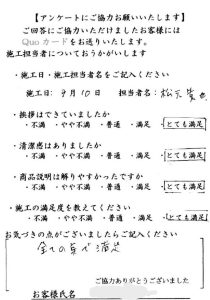 【アンケートにご協力お願いいたします】
ご回答にご協力いただけましたお客様には
Quoカードをお送りいたします。
施工担当者についておうかがいします
・施工日・施工担当者名をご記入ください
施工日: 9月10日 担当者名:
・挨拶はできていましたか
・不満 ・やや不満 ・普通 ・満足 ・とても満足
・清潔感はありましたか
・不満 ・やや不満 ・普通 ・満足 ・とても満足
・商品説明は解りやすかったですか
・不満 ・やや不満 ・普通 ・満足 ・とても満足
・施工の満足度を教えてください
・不満 ・やや不満 ・普通 ・満足 ・とても満足
お気づきの点がございましたらご記入ください
全ての点で満足
ご協力ありがとうございました
お客様氏名